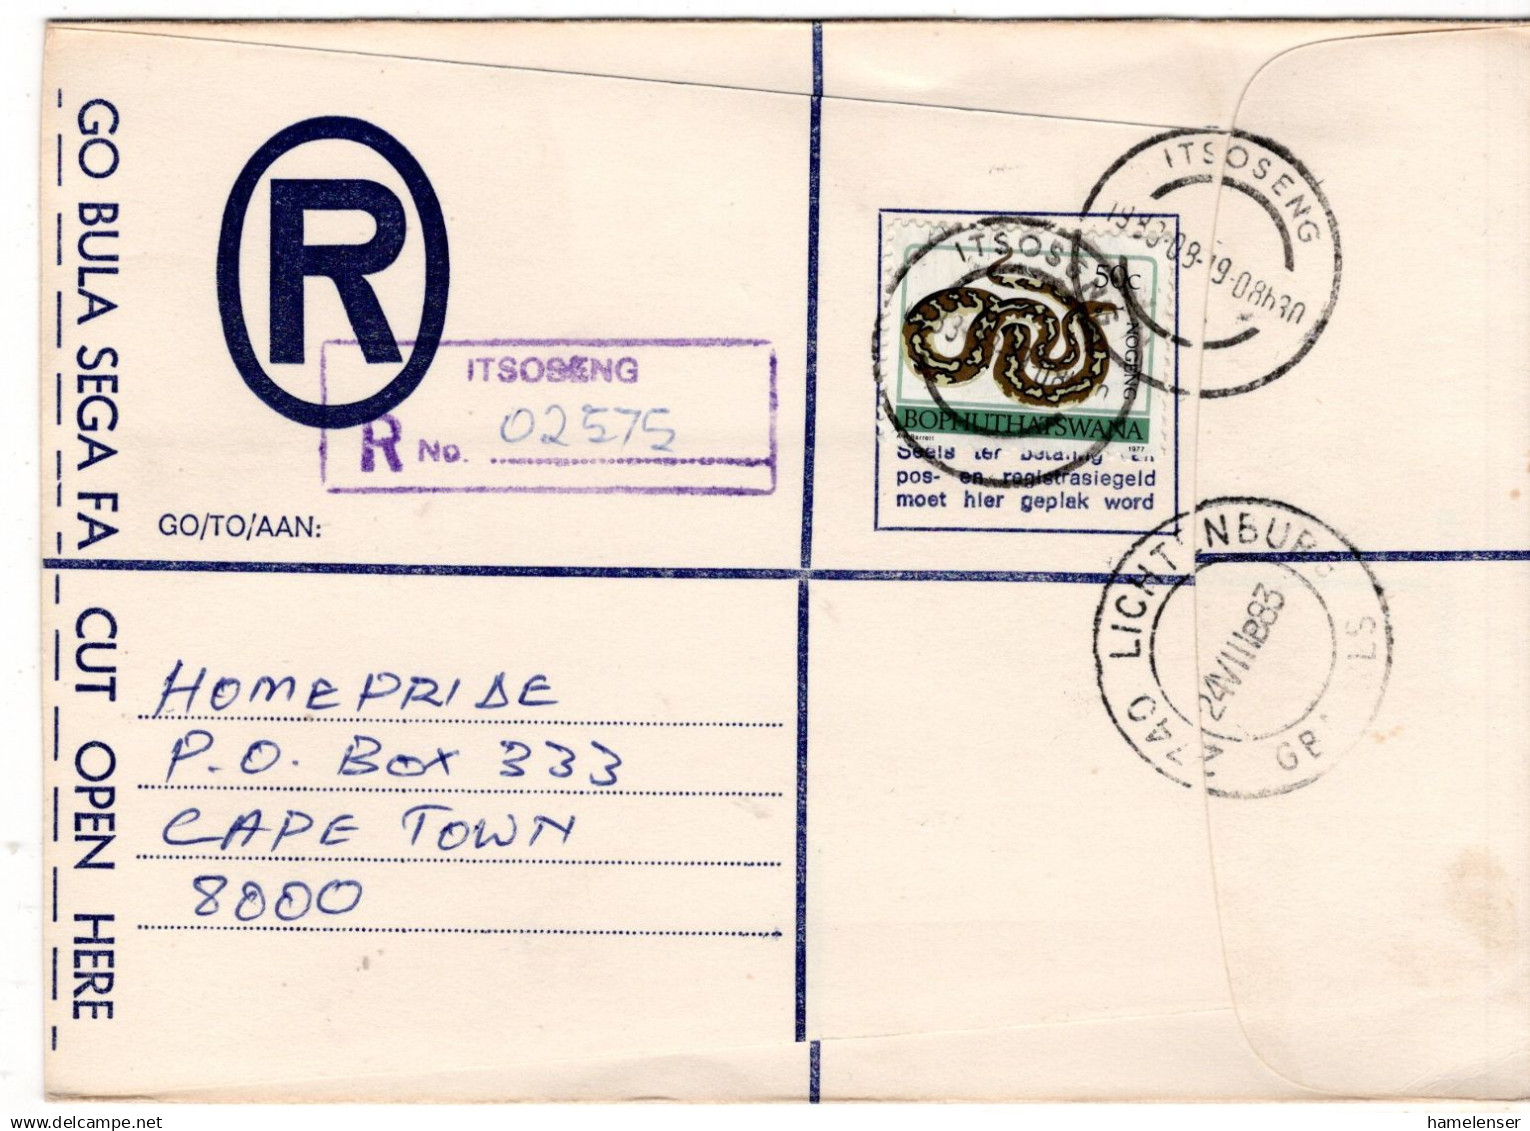 GO BULA SEGA FA
CUT OPEN HERE
R
ITSOSENG
R No. 02575
GO/TO/AAN:
HOMEPRIDE
P.O. BOX 333
CAPE TOWN
8000
ITSOSENG
50c
NOGENG
BOPHUTHATSWANA
1977
Seëls ter betaling van
pos- en registrasiegeld
moet hier geplak word
ITSOSENG
-08-19-08h30
LICHTENBURG
24VIII83
hamelenser